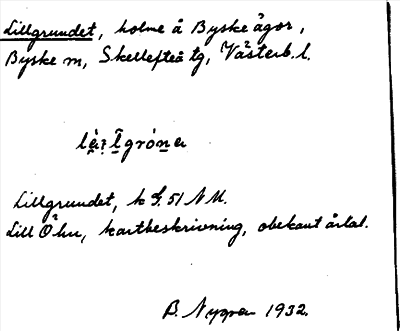 Lillgrundet, holme å Byske ägor,
Byske sn, Skellefteå tg, Västerb. l.
Lillgrundet, k S. 51 N M.
Lill Ö hn, kartbeskrivning, obekant årtal.
B. Nygren 1932.